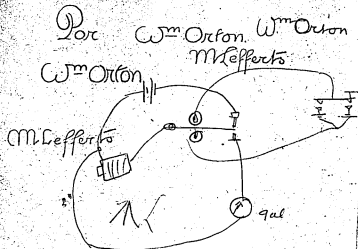 Por
Wm Orton. Wm Orton
M Lefferts
Wm Orton
M Lefferts
gal